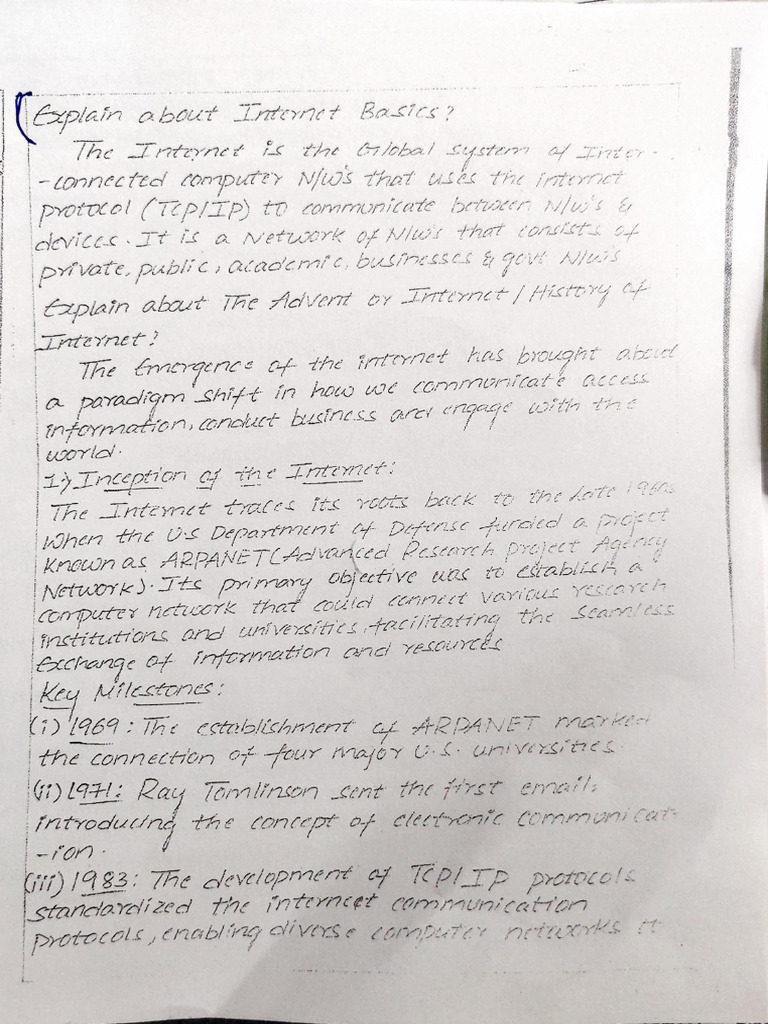 Explain about Internet Basics?
The Internet is the Global system of Inter-
-connected computer N/w's that uses the internet
protocol (TCP/IP) to communicate between N/w's &
devices. It is a Network of N/w's that consists of
private, public, academic, businesses & govt N/w's
Explain about The Advent or Internet / History of
Internet?
The Emergence of the internet has brought about
a paradigm shift in how we communicate access
information, conduct business and engage with the
world.
1) Inception of the Internet:
The Internet traces its roots back to the late 1960s
when the U.S Department of Defense funded a project
known as ARPANET (Advanced Research project Agency
Network). Its primary objective was to establish a
computer network that could connect various research
institutions and universities, facilitating the seamless
exchange of information and resources
Key Milestones:
(i) 1969: The establishment of ARPANET marked
the connection of four major U.S. universities.
(ii) 1971: Ray Tomlinson sent the first email,
introducing the concept of electronic communicat-
-ion.
(iii) 1983: The development of TCP/IP protocols
standardized the internet communication
protocols, enabling diverse computer networks